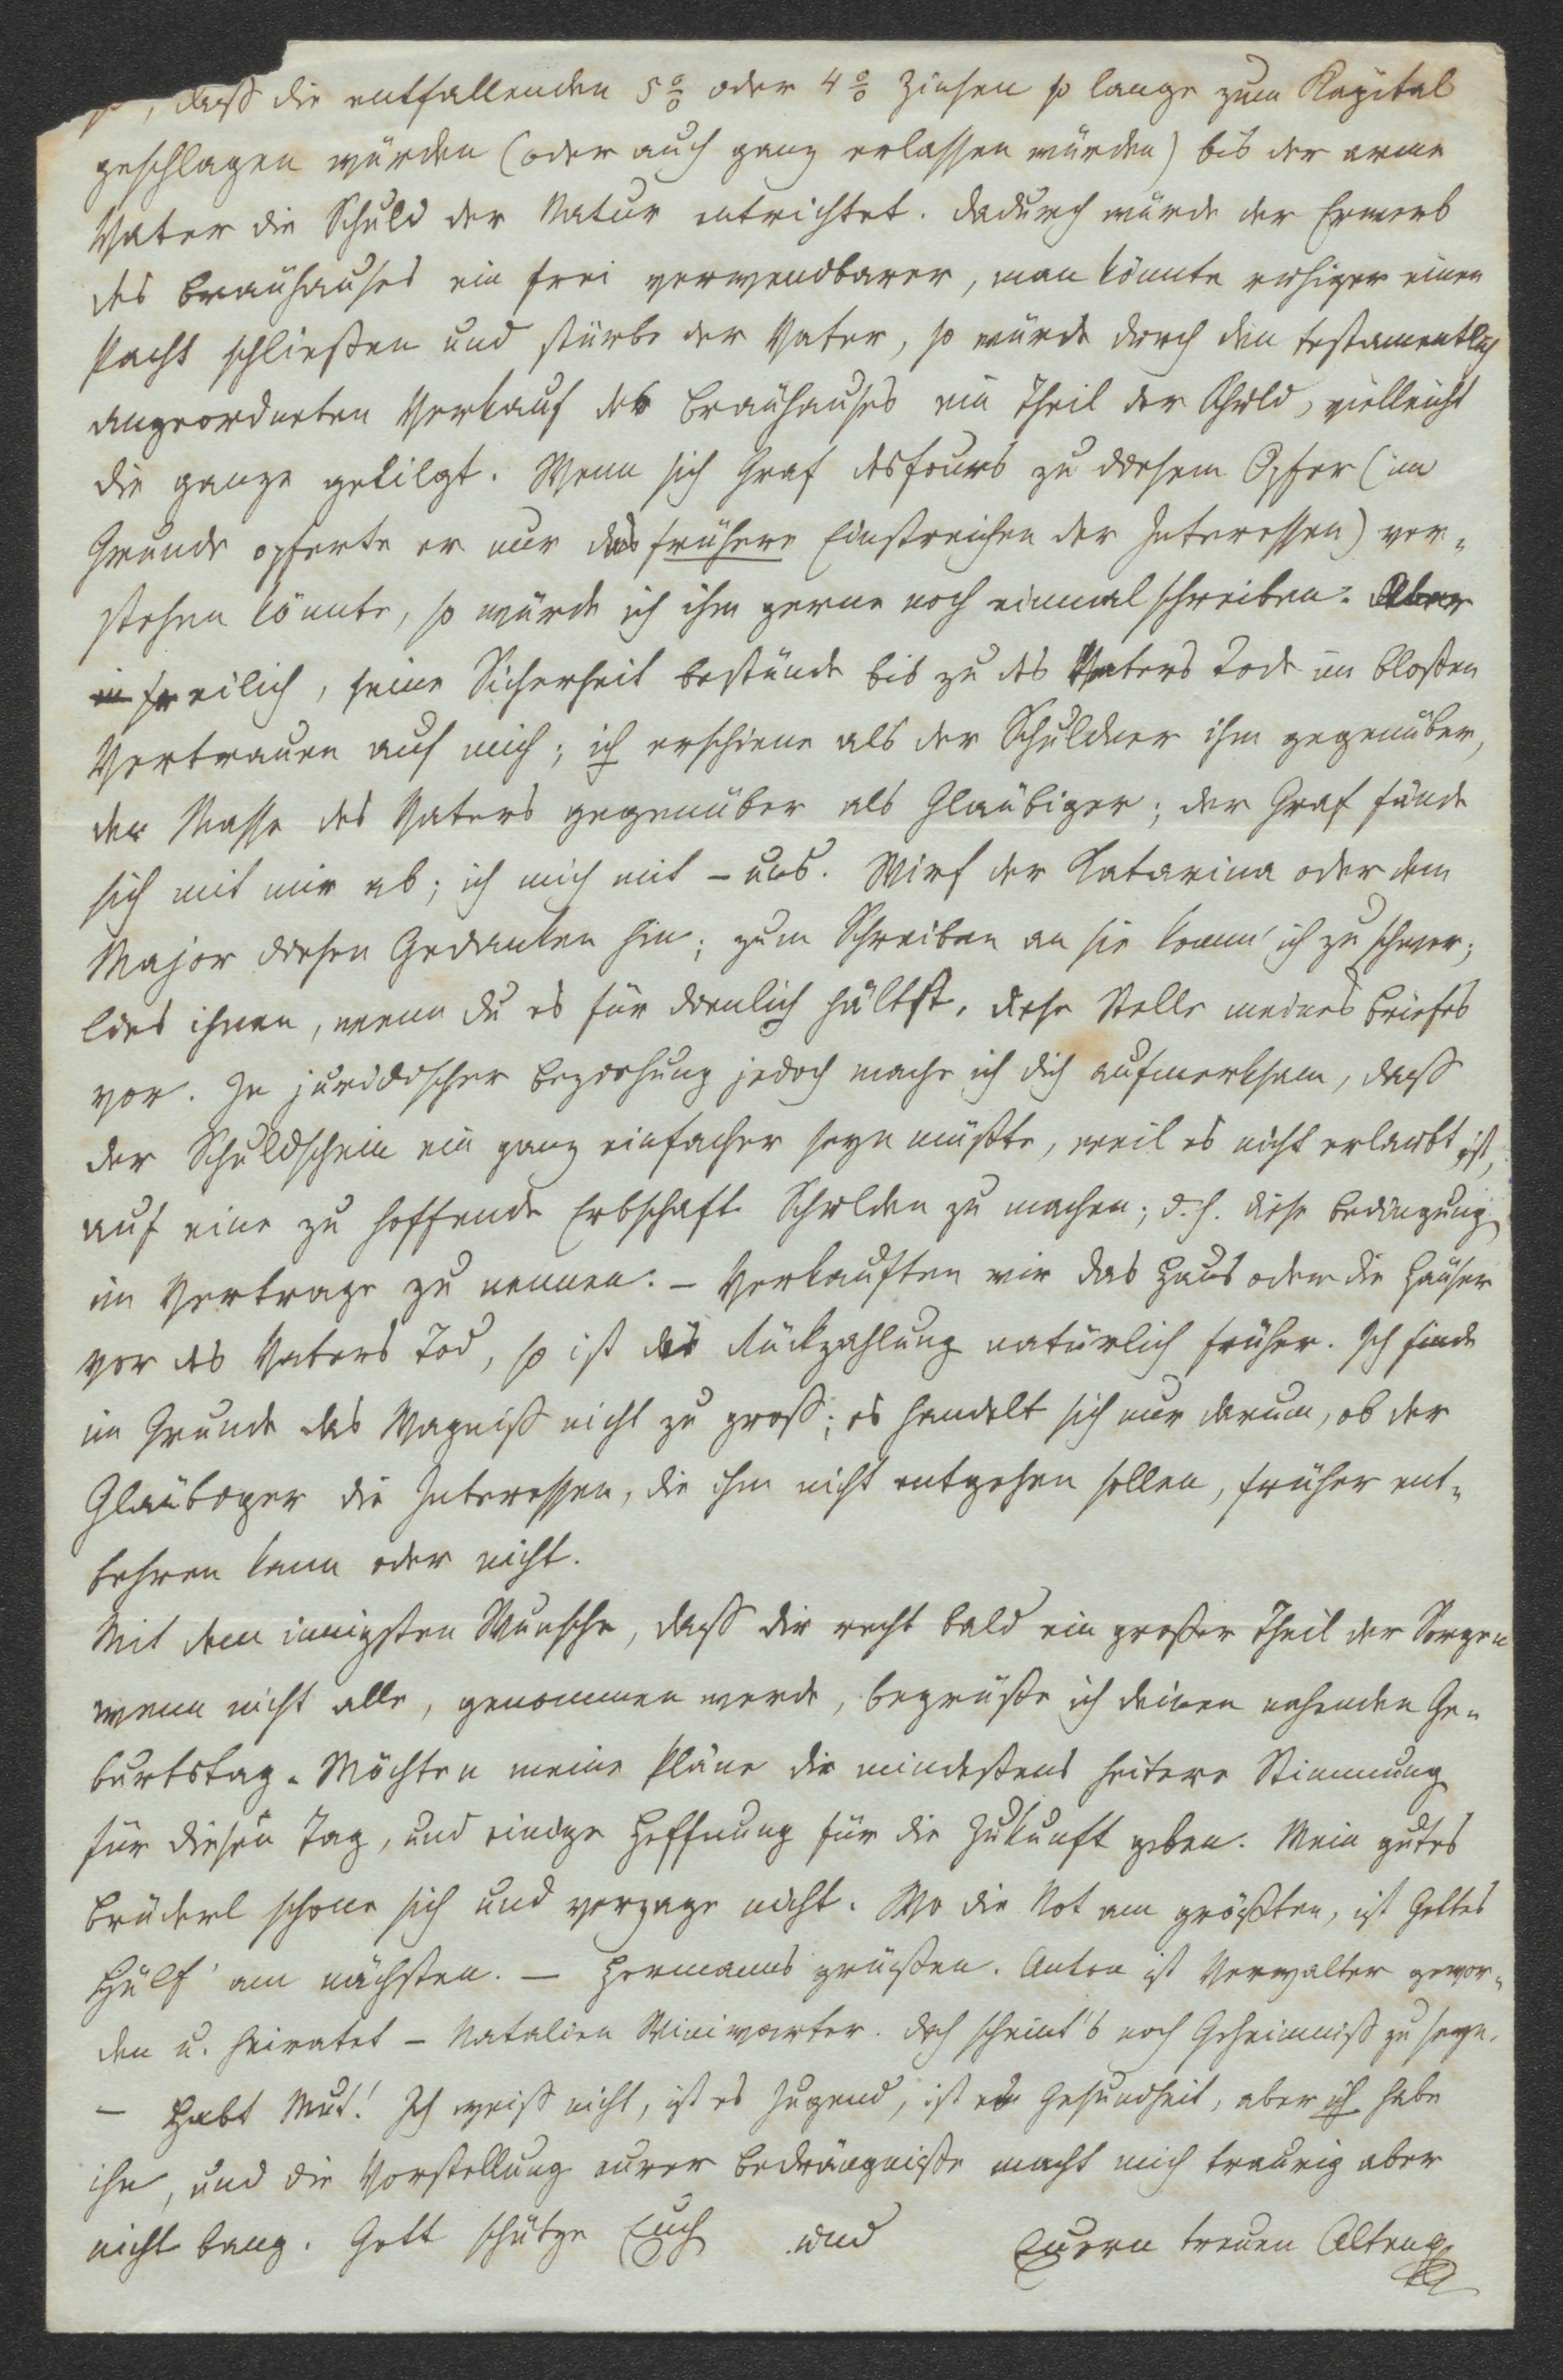 so, daß die entfallenden 5% oder 4% Zinsen so lange zum Kapital
geschlagen würden (oder auch ganz erlassen würden) bis der arme
Vater die Schuld der Natur entrichtet. Dadurch würde der Erwerb
des Brauhauses ein frei verwendbarer, man könnte ruhiger einen
Pacht schließen und stürbe der Vater, so würde durch den testamentlich
angeordneten Verkauf des Brauhauses ein Theil der Schuld, vielleicht
die ganze getilgt. Wenn sich Graf Desfours zu diesem Opfer (im
Grunde opferte er nur das frühere Einstreichen der Interessen) ver-
stehen könnte, so würde ich ihm gerne noch einmal schreiben. Aber
in freilich, seine Sicherheit bestünde bis zu des Vaters Tode im bloßen
Vertrauen auf mich; ich erschiene als der Schuldner ihm gegenüber,
der Masse des Vaters gegenüber als Gläubiger; der Graf fände
sich mit mir ab; ich mich mit – uns. Wirf der Katarina oder dem
Major diesen Gedanken hin; zum Schreiben an sie komm' ich zu schwer;
lies ihnen, wenn du es für dienlich hältst, diese Stelle meines Briefes
vor. In juridischer Beziehung jedoch mache ich dich aufmerksam, daß
der Schuldschein ein ganz einfacher seyn müßte, weil es nicht erlaubt ist,
auf eine zu hoffende Erbschaft Schulden zu machen; d. h. diese Bedingung
im Vertrage zu nennen. – Verkauften wir das Haus oder die Häuser
vor des Vaters Tod, so ist die Rückzahlung natürlich früher. Ich finde
im Grunde das Wagniß nicht zu groß; es handelt sich nur darum, ob der
Gläubiger die Interessen, die ihm nicht entgehen sollen, früher ent-
behren kann oder nicht.
Mit dem innigsten Wunsche, daß dir recht bald ein großer Theil der Sorgen
wenn nicht alle, genommen werde, begrüße ich deinen nahenden Ge-
burtstag. Möchten meine Pläne dir mindestens heitere Stimmung
für diesen Tag, und einige Hoffnung für die Zukunft geben. Mein gutes
Brüderl schone sich und verzage nicht. Wo die Not am größten, ist Gottes
Hülf' am nächsten. – Hermanns grüßen. Anton ist Verwalter gewor-
den u. heiratet – Natalien Winiwarter. Doch scheint's noch Geheimniß zu seyn.
– Habt Mut! Ich weiß nicht, ist es Jugend, ist es Gesundheit, aber ich habe
ihn, und die Vorstellung eurer Bedrängnisse macht mich traurig aber
nicht bang. Gott schütze Euch und Euern treuen Alten